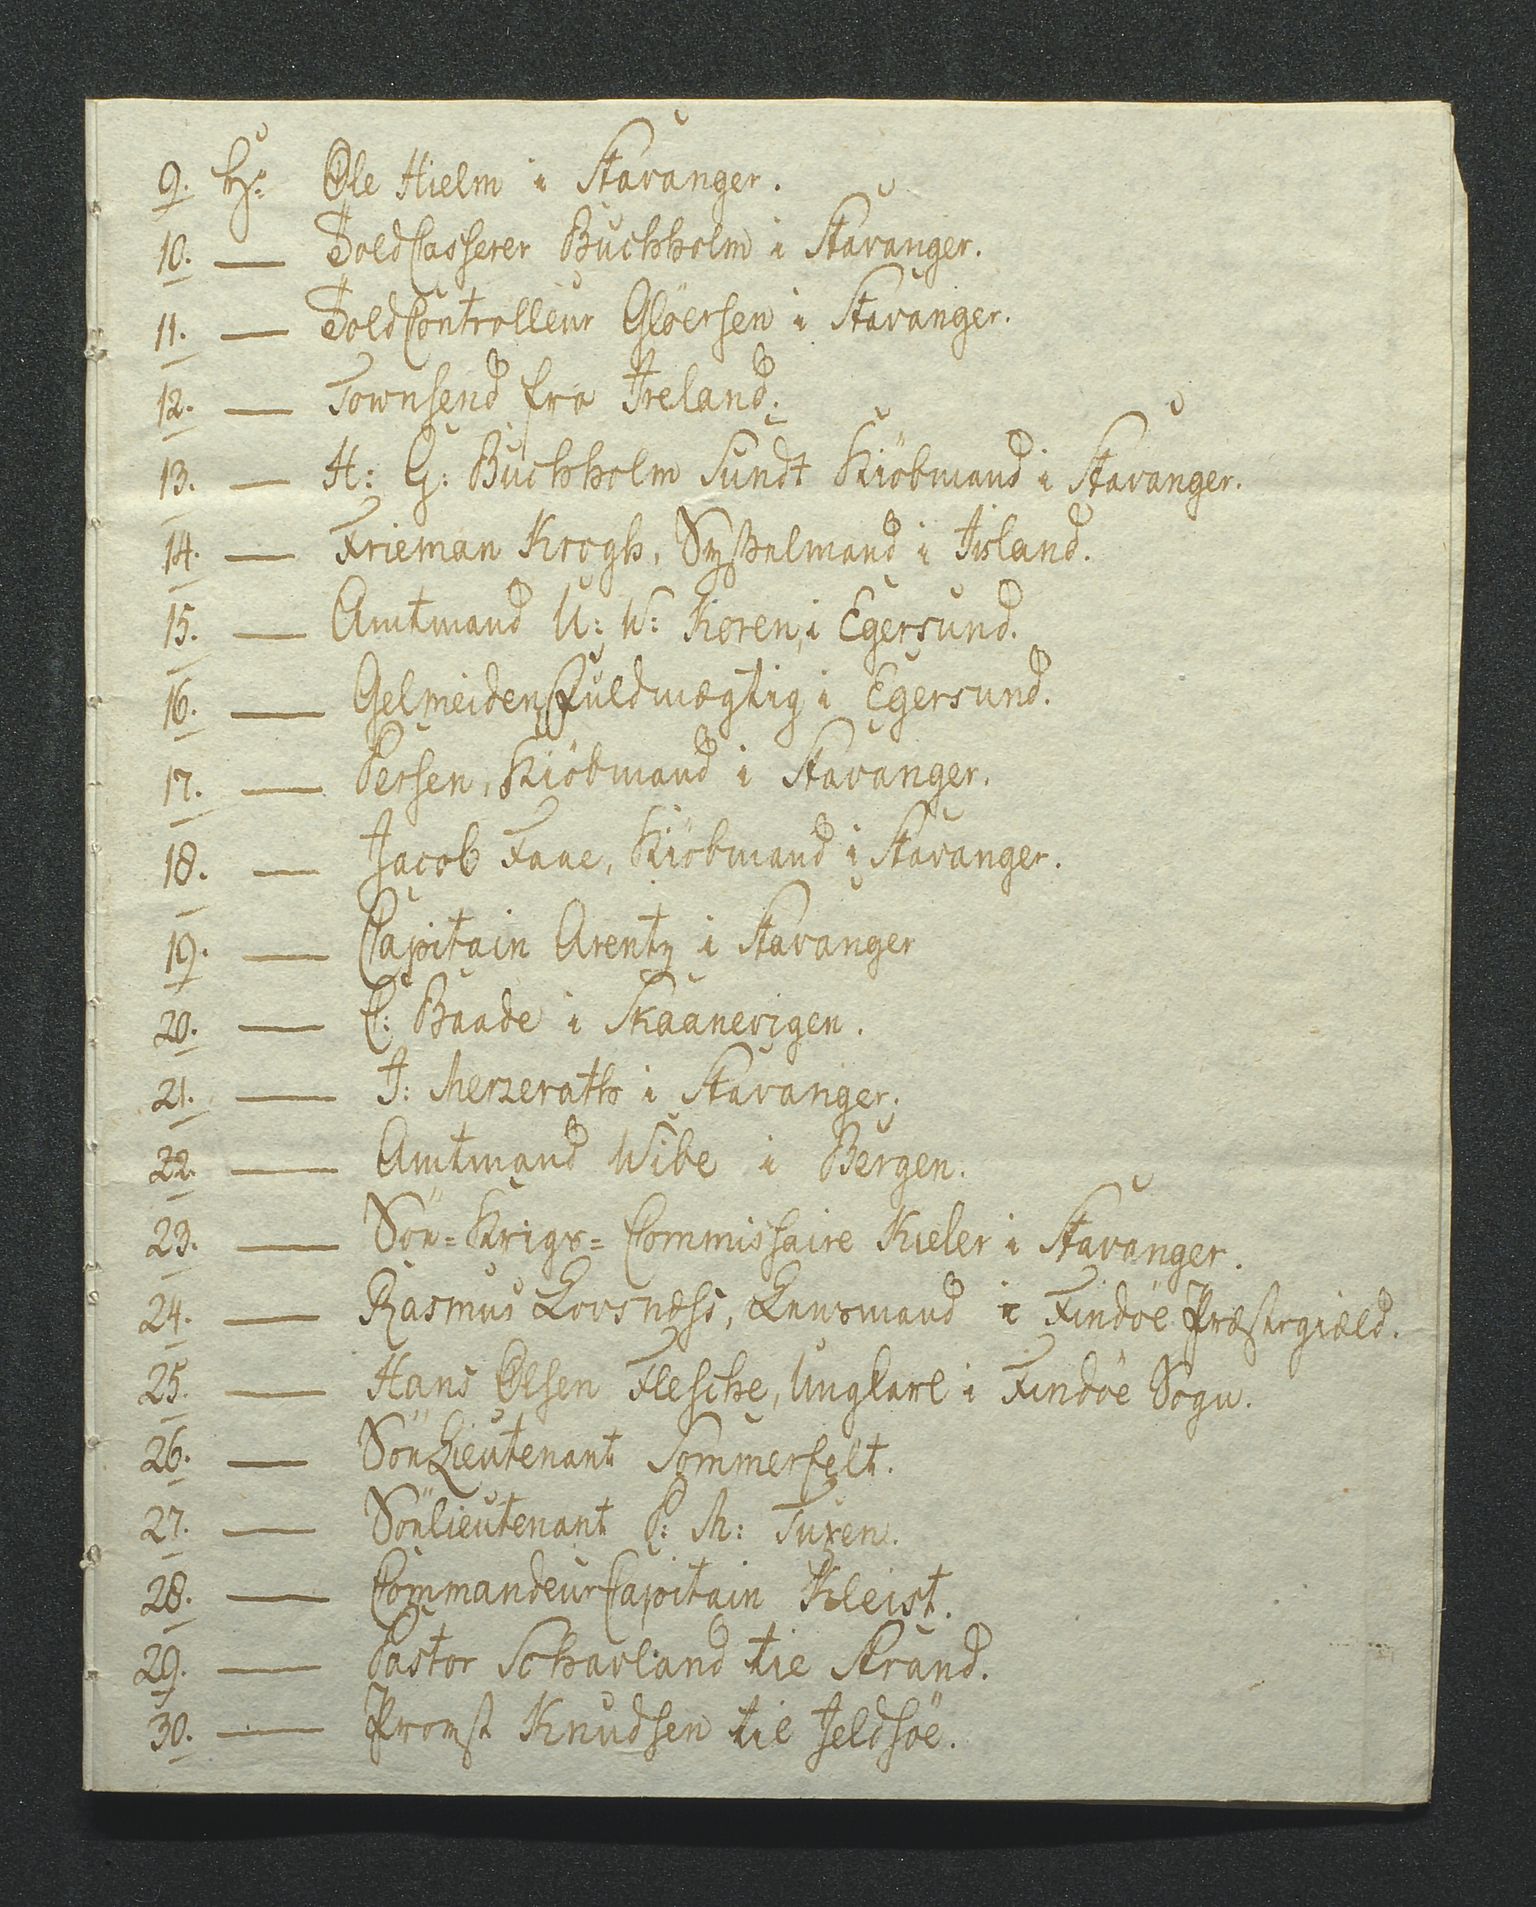 9. Hr: Ole Hielm i Stavanger.
10. — Told Casserer Buchholm i Stavanger.
11. — Told Controlleur Glöersen i Stavanger.
12. — Townsend fra Ireland.
13. — H: G: Buchholm Sundt Kiöbmand i Stavanger.
14. — Frieman Krogh, Sysselmand i Iisland.
15. — Amtmand U: W: Koren, i Egersund.
16. — Gelmeiden, Fuldmægtig i Egersund.
17. — Persen, Kiöbmand i Stavanger.
18. — Jacob Faae, Kiöbmand i Stavanger.
19. — Capitain Arentz i Stavanger
20. — C: Baade i Skaanevigen.
21. — J: Merzerath i Stavanger.
22. — Amtmand Wibe i Bergen.
23. — Söe-Krigs-Commissaire Kieler i Stavanger.
24. — Rasmus Lovsnæss, Lensmand i Findöe Præstegiæld.
25. — Hans Olsen Flesche, Ungkarl i Findöe Sogn.
26. — Söe Lieutenant Sommerfelt.
27. — Söelieutenant P: M: Tuxen.
28. — Commandeur Capitain Kleist.
29. — Pastor Schavland til Strand.
30. — Provst Knudsen til Jeldsöe.